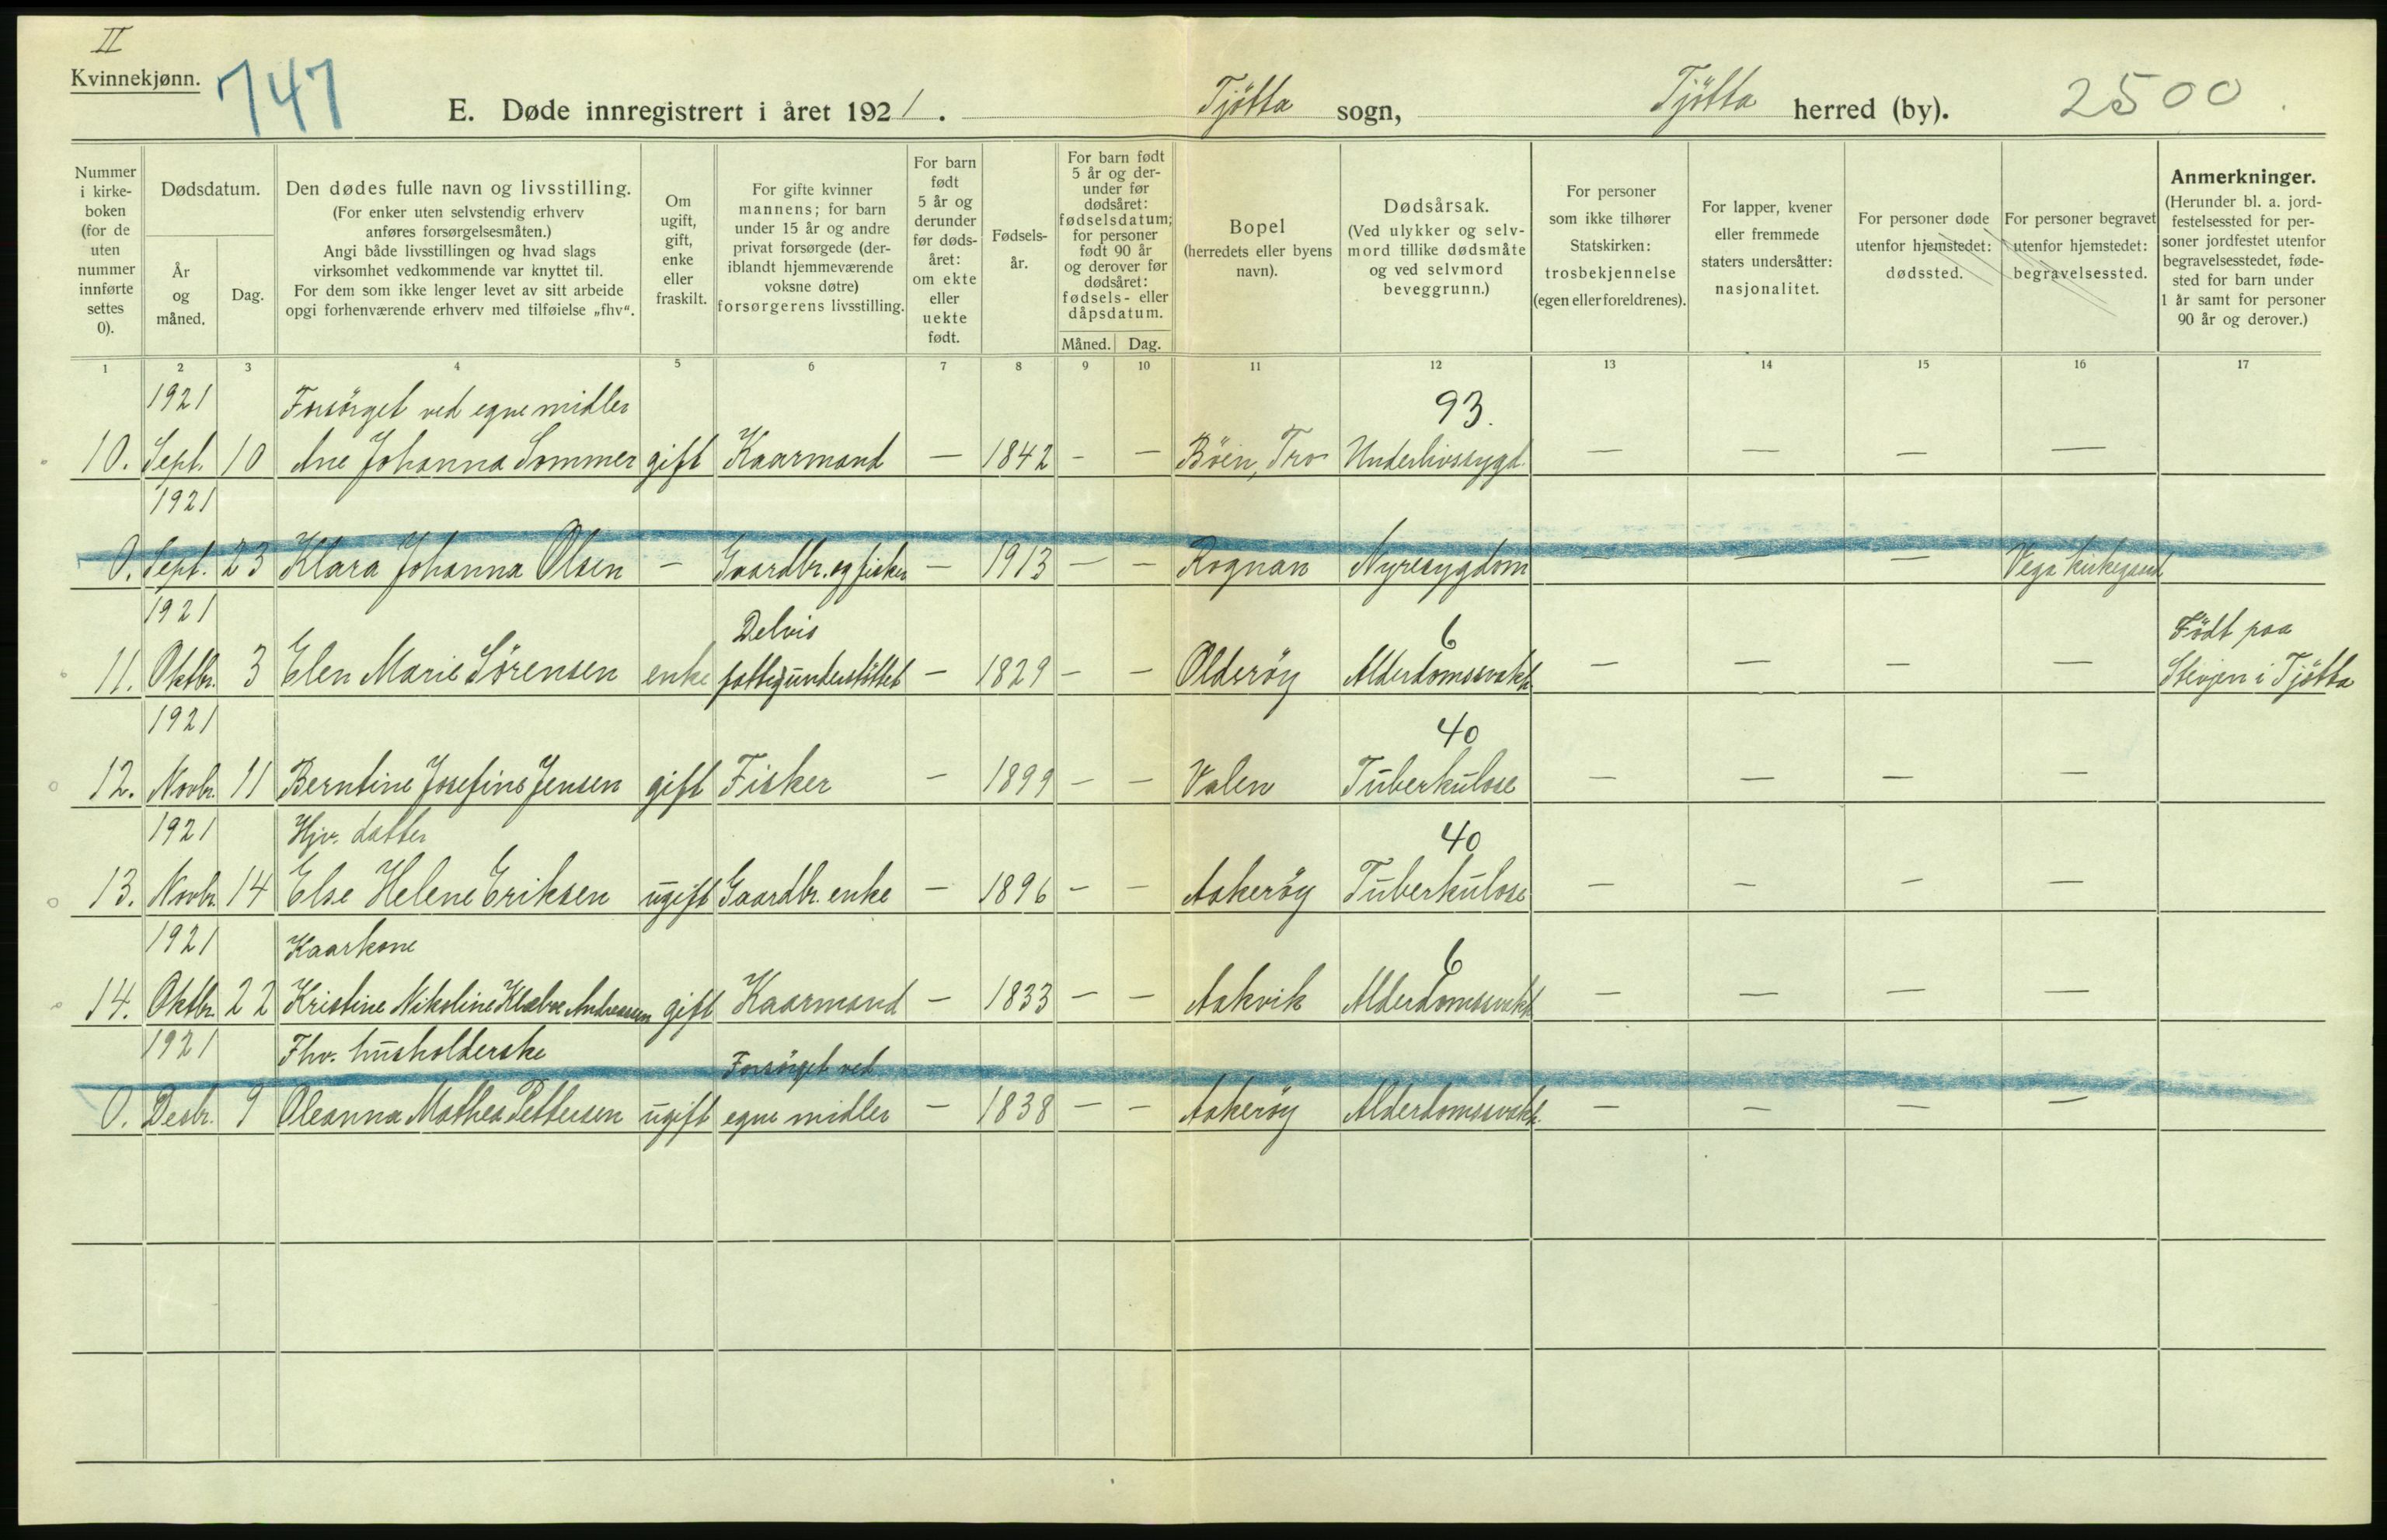 II
Kvinnekjønn.
747
E. Døde innregistrert i året 1921. Tjötta sogn, Tjötta herred (by). 2500
Nummer i kirkeboken (for de uten nummer innførte settes 0).
Dødsdatum.
År og måned.
Dag.
Den dødes fulle navn og livsstilling.
(For enker uten selvstendig erhverv anføres forsørgelsesmåten.)
Angi både livsstillingen og hvad slags virksomhet vedkommende var knyttet til.
For dem som ikke lenger levet av sitt arbeide opgi forhenværende erhverv med tilføielse „fhv“.
Om ugift, gift, enke eller fraskilt.
For gifte kvinner mannens; for barn under 15 år og andre privat forsørgede (deriblandt hjemmeværende voksne døtre) forsørgerens livsstilling.
For barn født 5 år og derunder før dødsåret: om ekte eller uekte født.
Fødselsår.
For barn født 5 år og derunder før dødsåret: fødselsdatum; for personer født 90 år og derover før dødsåret: fødsels- eller dåpsdatum.
Måned. Dag.
Bopel
(herredets eller byens navn).
Dødsårsak.
(Ved ulykker og selvmord tillike dødsmåte og ved selvmord beveggrunn.)
For personer som ikke tilhører Statskirken: trosbekjennelse (egen eller foreldrenes).
For lapper, kvener eller fremmede staters undersåtter: nasjonalitet.
For personer døde utenfor hjemstedet: dødssted.
For personer begravet utenfor hjemstedet: begravelsessted.
Anmerkninger.
(Herunder bl. a. jordfestelsessted for personer jordfestet utenfor begravelsesstedet, fødested for barn under 1 år samt for personer 90 år og derover.)
1 2 3 4 5 6 7 8 9 10 11 12 13 14 15 16 17
1921 Forsörget ved egne midler 93.
10. Sept. 10 Ane Johanna Sommer gift Kaarmand — 1842 - — Böen, Tro Underlivssygd. — — — —
1921
0. Sept. 23 Klara Johanna Olsen — Gaardbr. og fisker — 1913 — — Rognan Nyresygdom — — — Vega kirkegaard
1921 Delvis 6 Födt paa
11. Oktbr. 3 Elen Marie Sörensen enke fattigunderstöttet — 1829 — — Olderöy Alderdomssvakh. — — — — Stivjen i Tjötta
1921 40
12. Novbr. 11 Berntine Josefine Jensen gift Fisker — 1899 — — Valen Tuberkulose — — — —
1921 Hjv. datter 40
13. Novbr. 14 Else Helene Eriksen ugift Gaardbr. enke — 1896 — — Aakeröy Tuberkulose — — — —
1921 Kaarkone 6
14. Oktbr. 22 Kristine Nikoline Klæboe Andreassen gift Kaarmand — 1833 — — Aakvik Alderdomssvakh. — — — —
1921 Fhv. husholderske Forsörget ved
0. Desbr. 9 Oleanna Mathea Pettersen ugift egne midler — 1838 — — Aakeröy Alderdomssvakh. — — — —